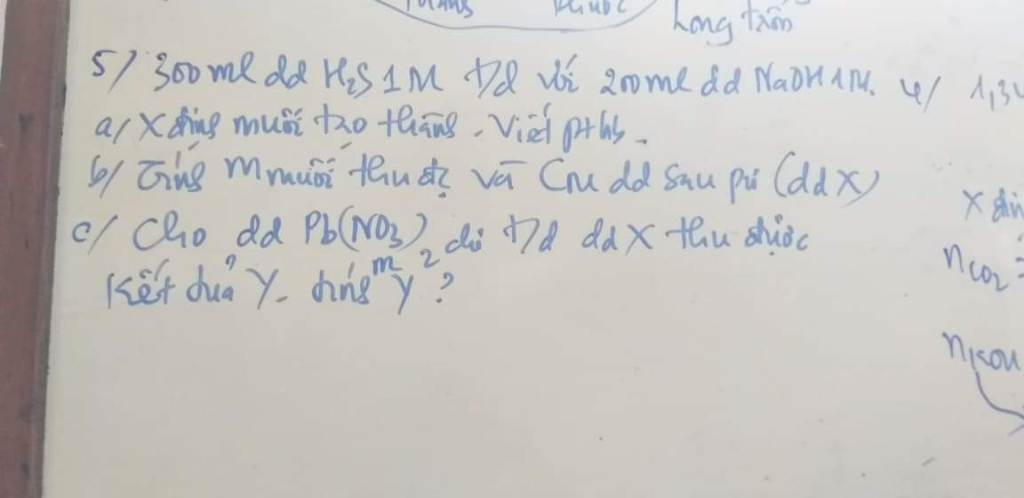 Long trắng
5/ 300ml dd H₂S 1M t/d với 200ml dd NaOH 1M. 4/ 1,34
a/ X định muối tạo thành. Viết pthh.
b/ Tính m muối thu đc và CM dd sau pứ (ddX)
c/ Cho dd Pb(NO3)2 dư t/d ddX thu được
Kết tủa Y. tính mY?
X địn
nCO2 =
nKOH